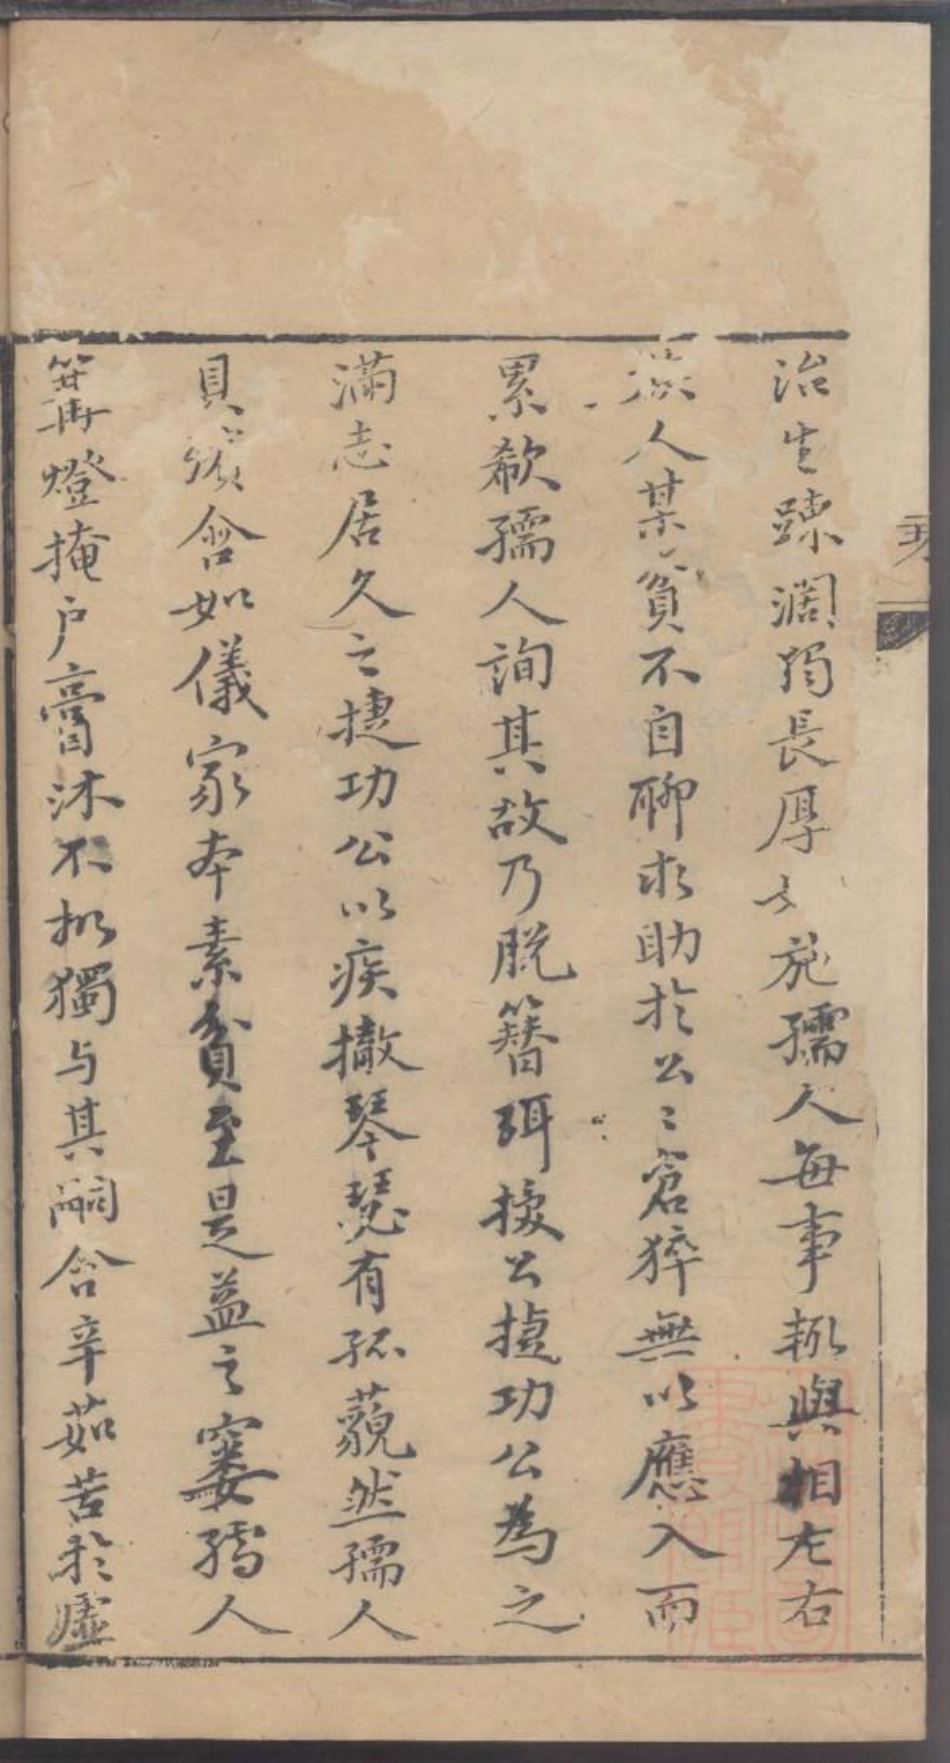 治生踈濶獨長厚好施孺人每事輒與相左右
人某貧不自聊求助於公〻窘猝無以應入而
累欷孺人詢其故乃脱簪珥授公捷功公為之
滿志居久之捷功公以疾撤琴瑟有孤藐然孺人
貝殯含如儀家本素貧至是益之窶孺人
篝燈掩户膏沐不御獨与其嗣含辛茹苦於墟